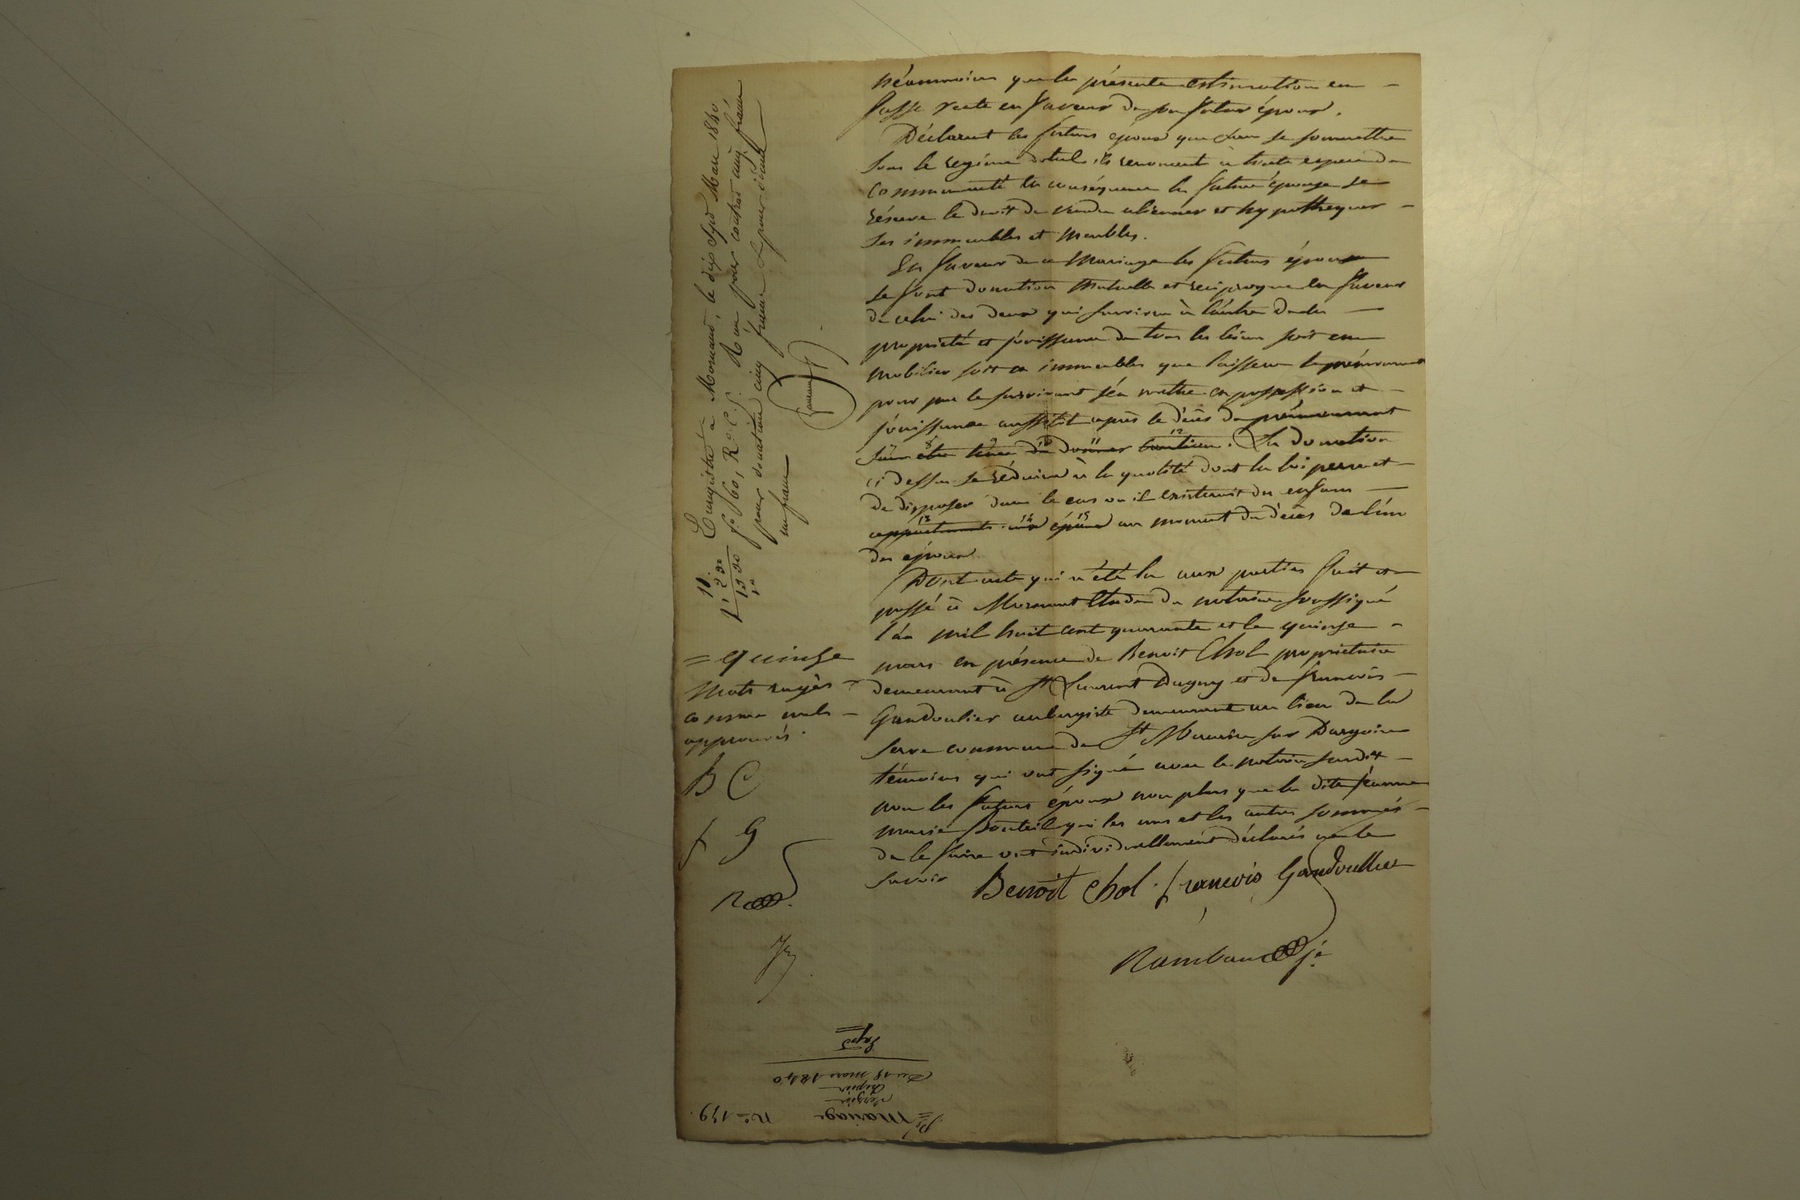 néanmoins que la présente estimation en
fasse vente en faveur du futur époux.
Déclarent les futurs époux que se soumettre
sous le régime dotal ils renoncent à toute espèce de
communauté En conséquence la future épouse se
réserve le droit de vendre aliener et hypothequer
ses immeubles et meubles.
En faveur de ce mariage les futurs époux
se font donation mutuelle et reciproque en faveur
de celui des deux qui survivra à l'autre de la
propriété et jouissance de tous les biens soit en
mobilier soit en immeubles que laissera le prémourant
pour par le survivant s'en mettre en possession et
jouissance aussitôt après le décès du prémourant
sans être tenu de donner caution. La donation
ci dessus se réduira à la quotité dont la loi permet
de disposer dans le cas ou il existerait des enfans
époux au moment du décès de l'un
des époux
Dont acte qui a été lu aux parties fait et
passé à Mornant Etude du notaire soussigné
l'an mil huit cent quarante et le quinze
mars en présence de Benoit Chol propriétaire
demeurant à St Laurent Dagny et de françois
Gandoulier aubergiste demeurant au lieu de la
commune de St Maurice sur Dargoire
témoins qui ont signé avec le notaire susdit
non les futurs époux non plus que la dite jeanne
marie Bouteil qui les uns et les autres sommés
de le faire ont individuellement déclarés ne le
savoir
Benoit Chol françois Gandoullier
Rambaud
= quinze
mots rayés
comme nuls
approuvés.
B C
f G
R
Enregistré à Mornant, le dix sept Mars 1840
f° 60, R° C. 5. Reçu pour contrat cinq francs
pour donation cinq francs
un franc
Mariage N° 179.
Du 15 mars 1840